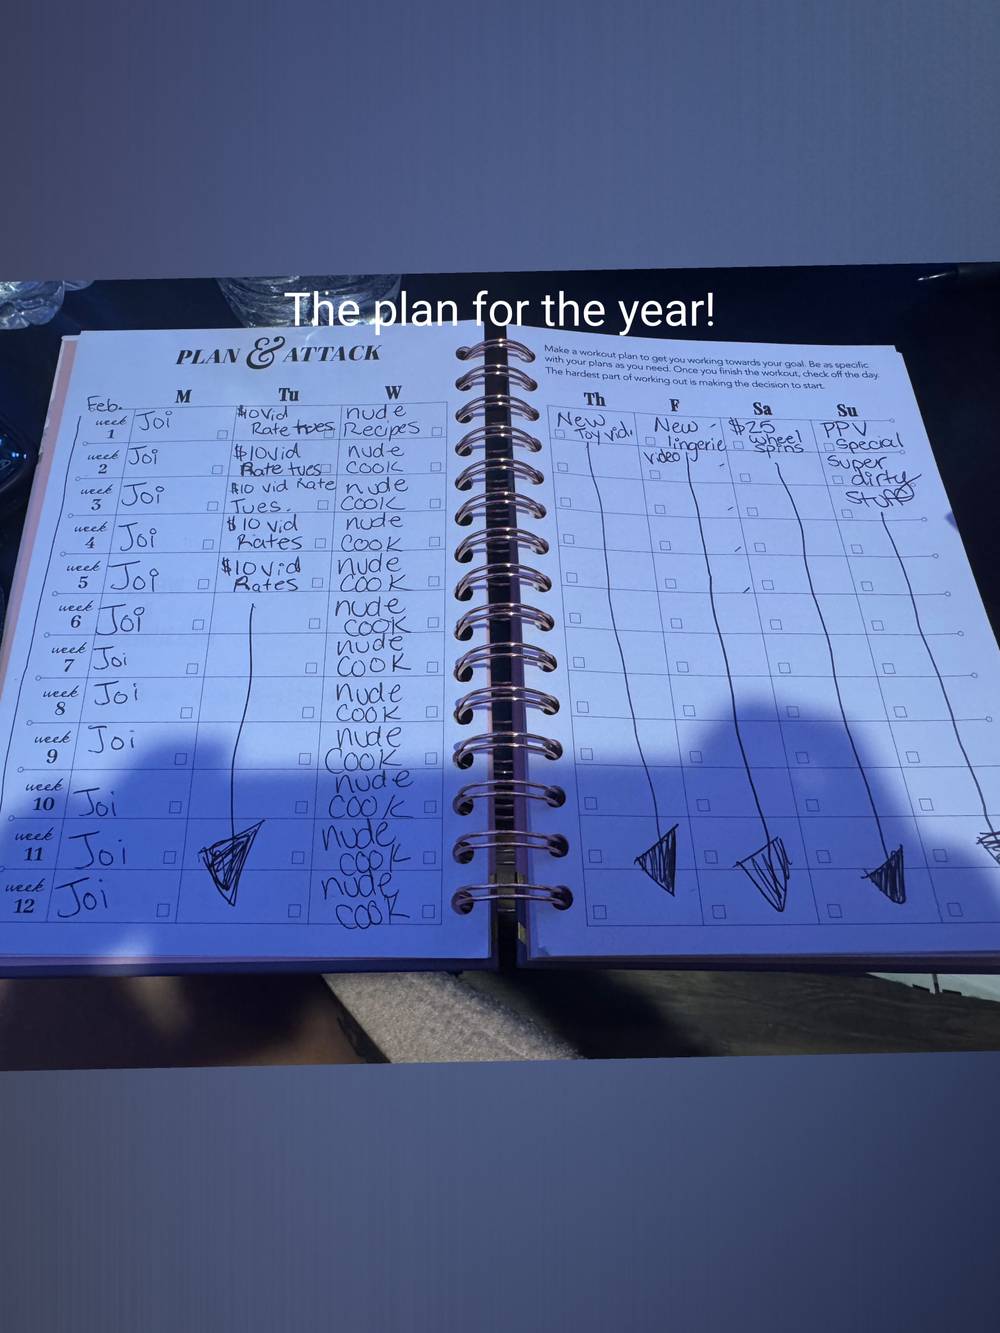 The plan for the year!
PLAN & ATTACK
Make a workout plan to get you working towards your goal. Be as specific
with your plans as you need. Once you finish the workout, check off the day.
The hardest part of working out is making the decision to start.
Feb.
M
Tu
W
Th
F
Sa
Su
week
1
Joi
$10 Vid
Rate tues
nude
Recipes
New
Toy vid.
New
lingerie
video
$25
wheel
spins
PPV
Special
Super
dirty
Stuff
week
2
Joi
$10 vid
Rate tues
nude
cook
week
3
Joi
$10 vid Rate
Tues.
nude
cook
week
4
Joi
$10 vid
Rates
nude
cook
week
5
Joi
$10 vid
Rates
nude
cook
week
6
Joi
nude
cook
week
7
Joi
nude
cook
week
8
Joi
nude
cook
week
9
Joi
nude
cook
week
10
Joi
nude
cook
week
11
Joi
nude
cook
week
12
Joi
nude
cook